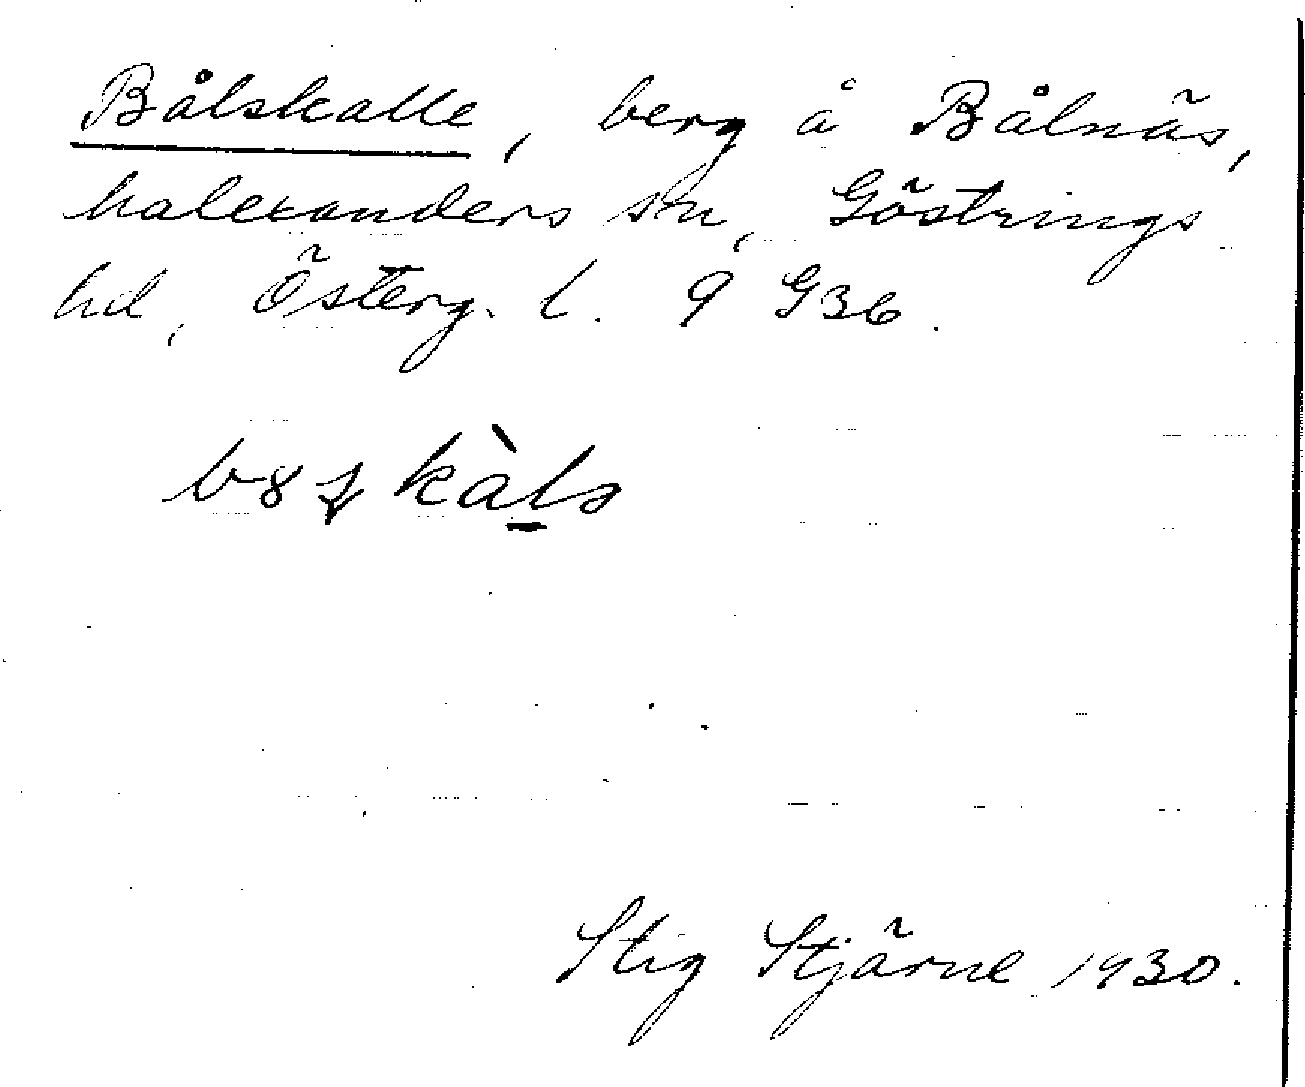 Bålskalle, berg å Bålnäs,
Malexanders sn, Göstrings
hd, Österg. l. 9 G36.
Stig Stjärne 1930.